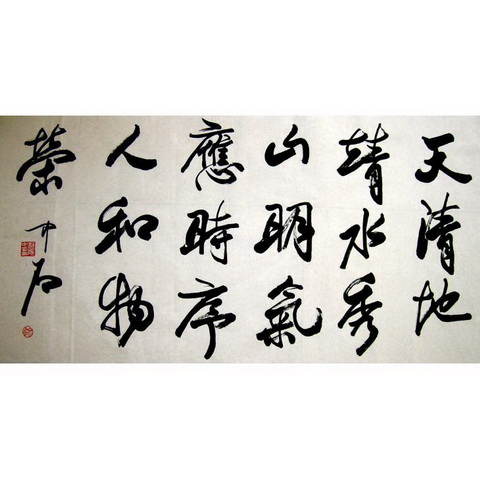 天清地
靖水秀
山明氣
應時序
人和物
榮 中石